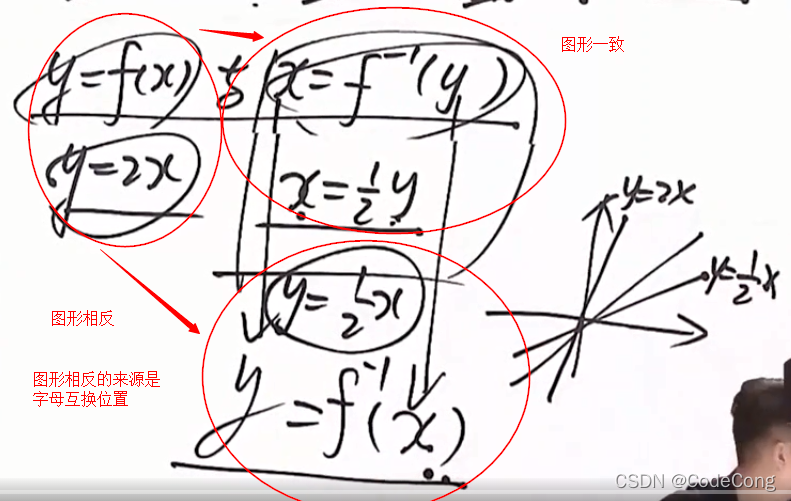 y=f(x) 与 x=f⁻¹(y)
图形一致
y=2x
x=½y
y=2x
y=½x
y=½x
图形相反
图形相反的来源是
字母互换位置
y=f⁻¹(x)
CSDN @CodeCong